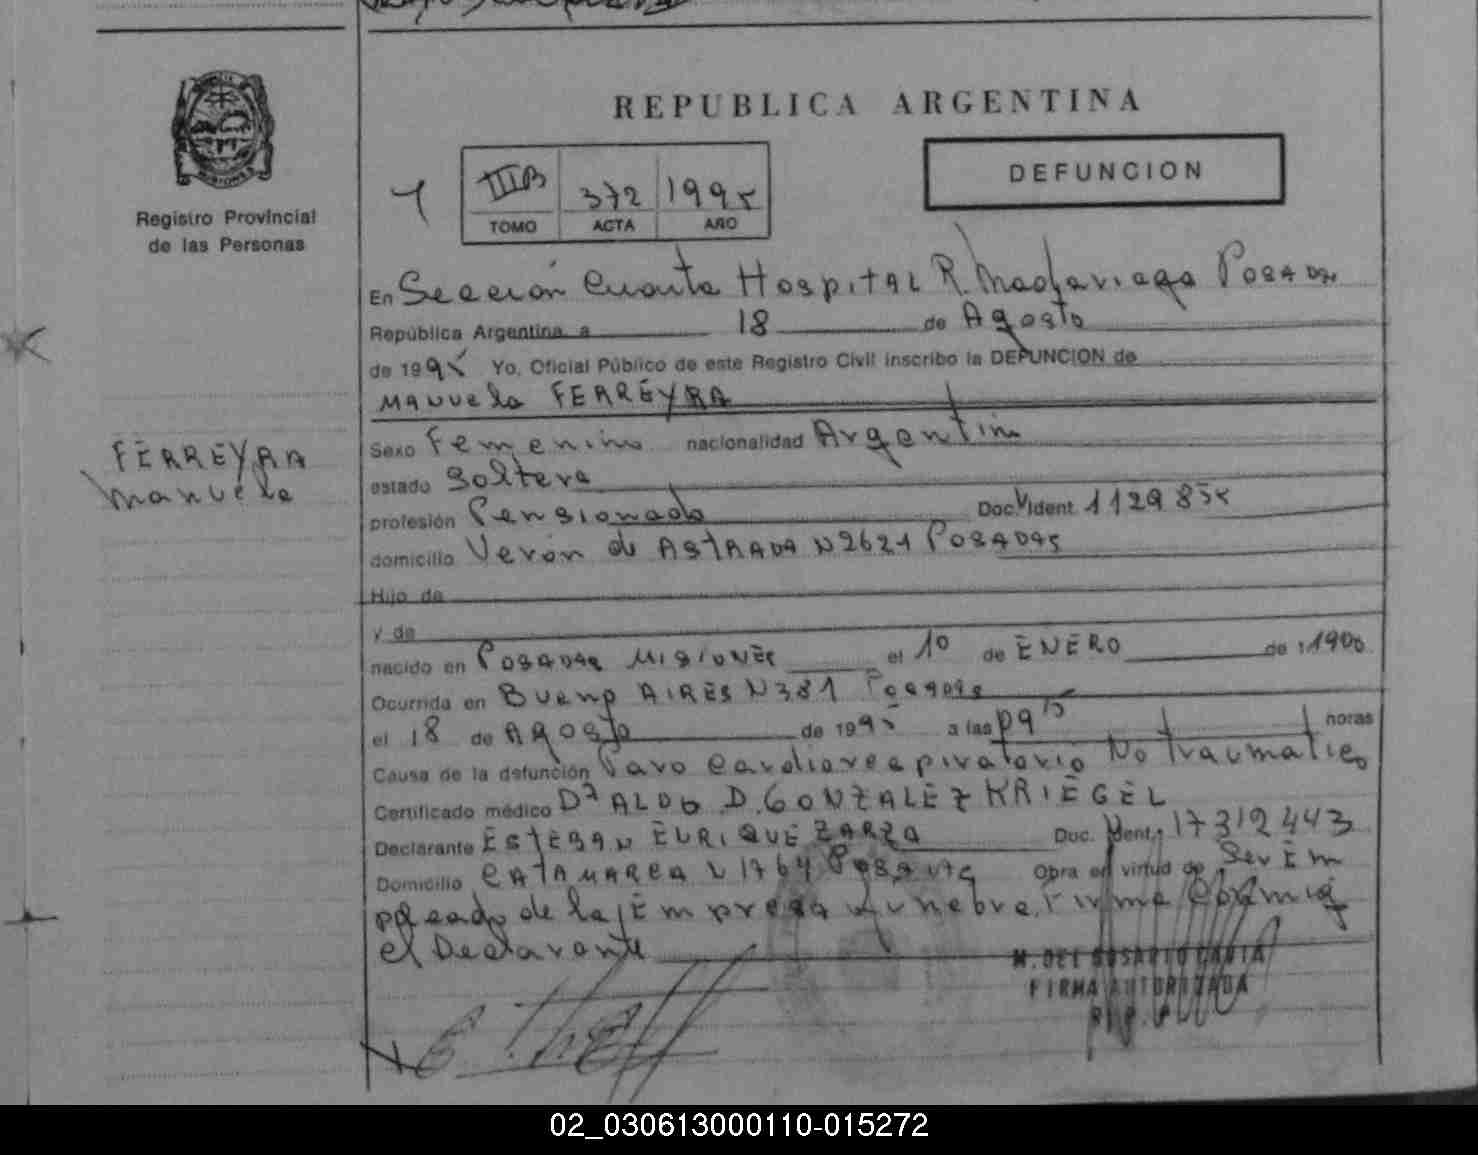 REPUBLICA ARGENTINA
Registro Provincial
de las Personas
IIIB 372 1995
TOMO ACTA AÑO
DEFUNCION
En Sección Cuarta Hospital R. Madariaga Posadas
República Argentina a 18 de Agosto
de 1995 Yo, Oficial Público de este Registro Civil inscribo la DEFUNCION de
MANUela FERREYRA
FERREYRA
Manuela
Sexo Femenino nacionalidad Argentina
estado Soltera
profesión Pensionada Doc. Ident. 1129835
domicilio Verón de ASTRADA N 2621 POSADAS
Hijo de
y de
nacido en POSADAS MISIONES el 10 de ENERO de 1900
Ocurrida en Buenos AIRES N 381 Posadas
el 18 de Agosto de 1995 a las 09 15 horas
Causa de la defunción Paro Cardiorespiratorio No Traumatico
Certificado médico Dr ALDO D. GONZALEZ KRIEGEL
Declarante ESTEBAN ENRIQUE ZARZA Doc. Ident. 17312443
Domicilio CATAMARCA N 1764 Posadas Obra en virtud de Ser Em
pleado de la Empresa Funebre. Firma Conmigo
el Declarante
M. DEL ROSARIO
FIRMA AUTORIZADA
R. P. P.
02_030613000110-015272